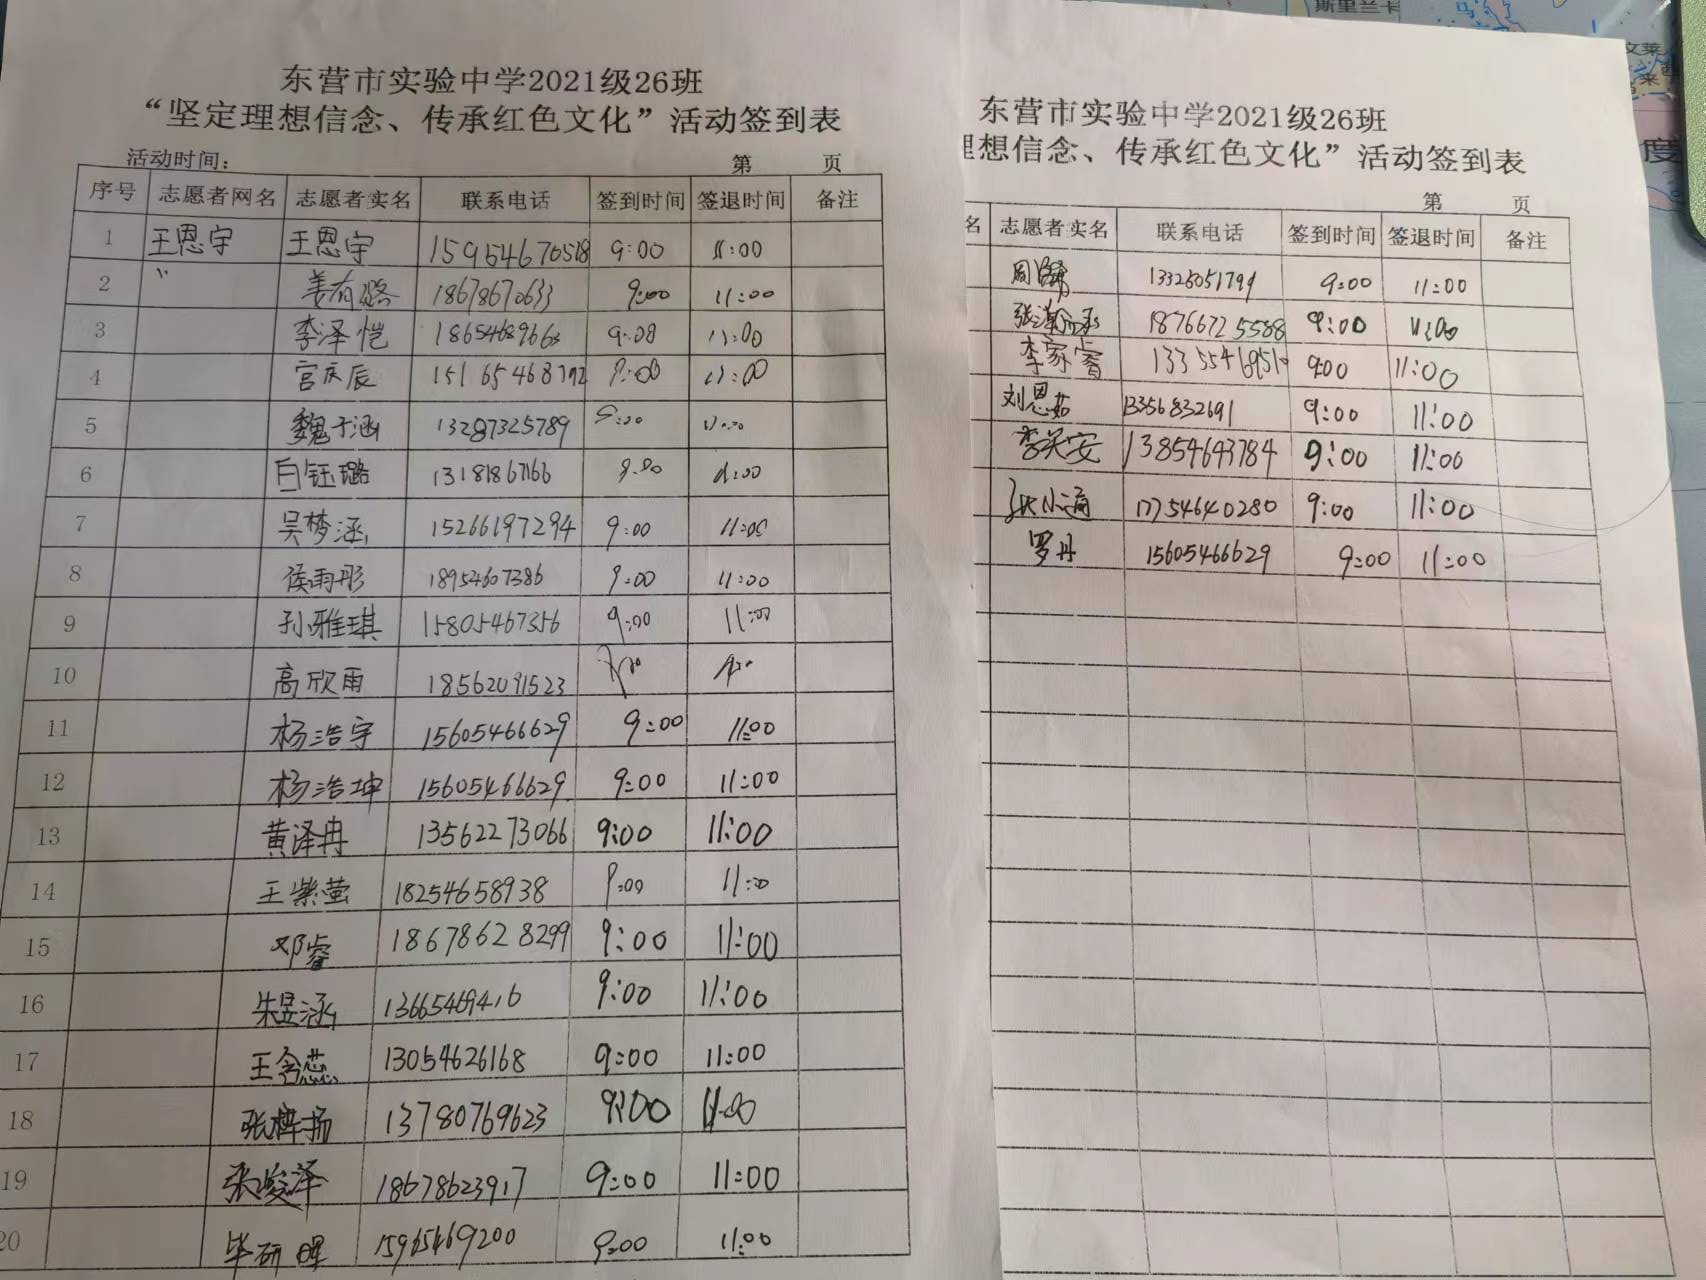 斯里兰卡
文莱
来
度
东营市实验中学2021级26班
“坚定理想信念、传承红色文化”活动签到表
活动时间： 第 页
序号 志愿者网名 志愿者实名 联系电话 签到时间 签退时间 备注
1 王恩宇 王恩宇 15954670518 9:00 11:00
2 〃 姜有璐 18678670633 9:00 11:00
3 李泽恺 9:00 11:00
4 宫庆辰 15165468792 9:00 11:00
5 魏子涵 13287325789 9:00 11:00
6 白钰璐 13181867166 9:00 11:00
7 吴梦涵 15266197294 9:00 11:00
8 侯雨彤 18954607386 9:00 11:00
9 孙雅琪 15805467356 9:00 11:00
10 高欣雨 18562091523
11 杨浩宇 15605466629 9:00 11:00
12 杨浩坤 15605466629 9:00 11:00
13 黄泽冉 13562273066 9:00 11:00
14 王紫萤 18254658938 9:00 11:00
15 邓睿 18678628299 9:00 11:00
16 朱昱涵 13665469416 9:00 11:00
17 王含蕊 13054626168 9:00 11:00
18 张梓扬 13780769623 9:00 11:00
19 张峻泽 18678623917 9:00 11:00
20 毕研晖 15965469200 9:00 11:00
东营市实验中学2021级26班
理想信念、传承红色文化”活动签到表
第 页
名 志愿者实名 联系电话 签到时间 签退时间 备注
13326051791 9:00 11:00
18766725588 9:00 11:00
李家睿 9:00 11:00
刘恩茹 13356832691 9:00 11:00
13854643784 9:00 11:00
张小涵 17754640280 9:00 11:00
罗丹 15605466629 9:00 11:00